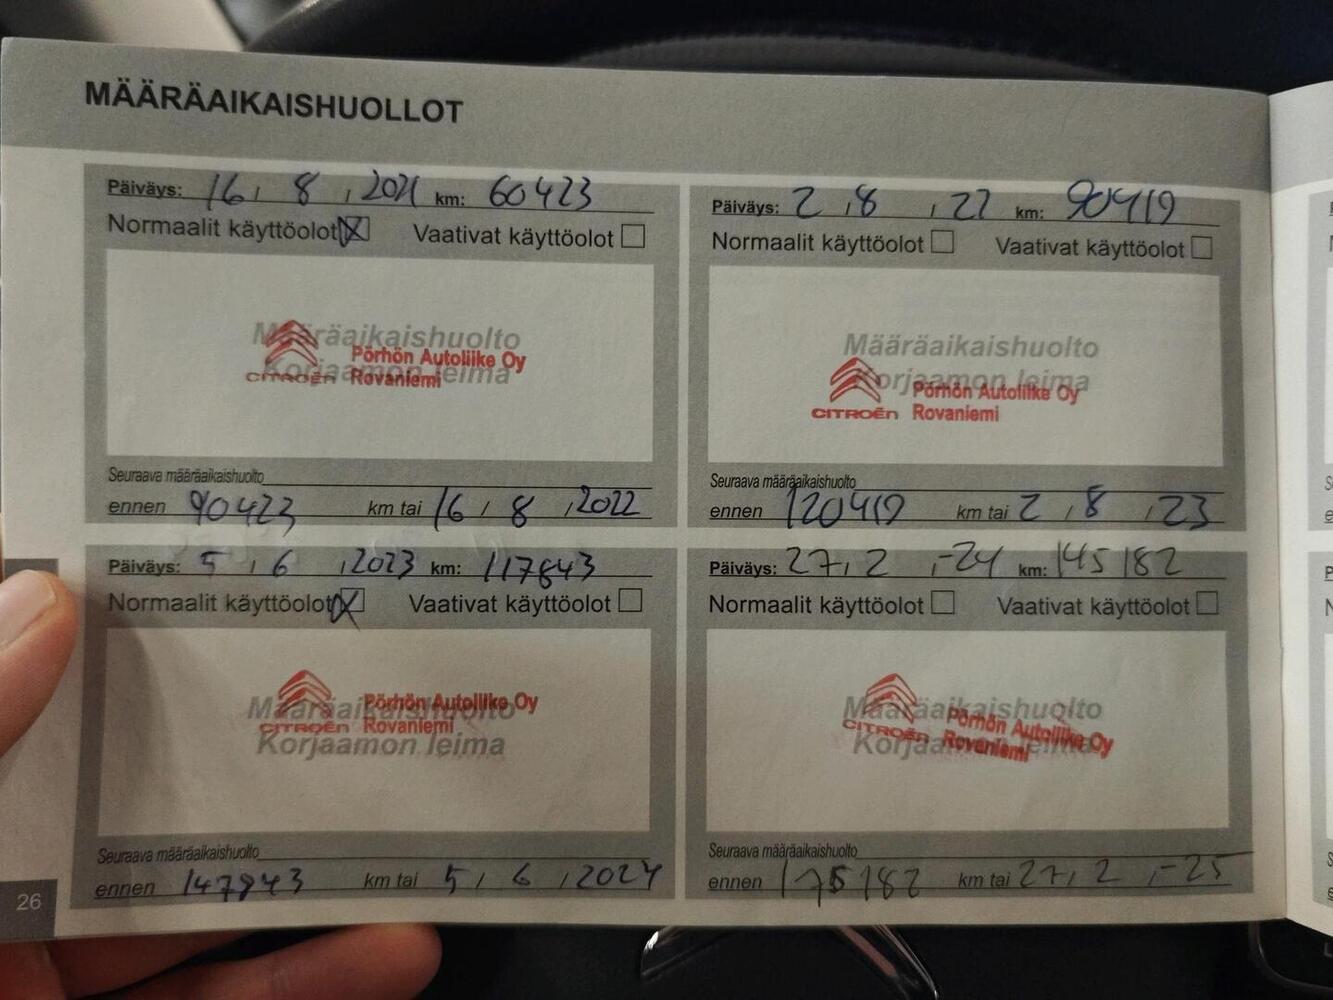 MÄÄRÄAIKAISHUOLLOT
Päiväys: 16, 8, 2021 km: 60423
Normaalit käyttöolot X Vaativat käyttöolot
Määräaikaishuolto
Korjaamon leima
CITROËN Pörhön Autoliike Oy
Rovaniemi
Seuraava määräaikaishuolto
ennen 90423 km tai 16, 8, 2022
Päiväys: 2, 8, 22 km: 90419
Normaalit käyttöolot Vaativat käyttöolot
Määräaikaishuolto
Korjaamon leima
CITROËN Pörhön Autoliike Oy
Rovaniemi
Seuraava määräaikaishuolto
ennen 120419 km tai 2, 8, 23
Päiväys: 5, 6, 2023 km: 117843
Normaalit käyttöolot X Vaativat käyttöolot
Määräaikaishuolto
Korjaamon leima
CITROËN Pörhön Autoliike Oy
Rovaniemi
Seuraava määräaikaishuolto
ennen 147843 km tai 5, 6, 2024
Päiväys: 27, 2, -24 km: 145182
Normaalit käyttöolot Vaativat käyttöolot
Määräaikaishuolto
Korjaamon leima
CITROËN Pörhön Autoliike Oy
Rovaniemi
Seuraava määräaikaishuolto
ennen 175182 km tai 27, 2, -25
26